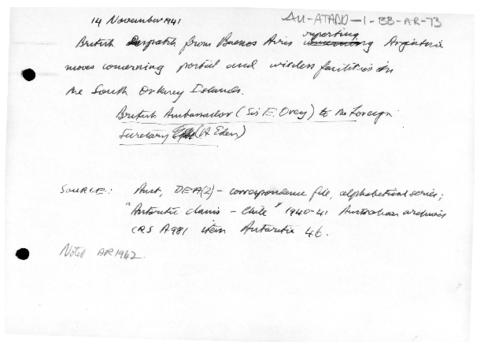 14 November 1941
AU-ATADD-1-BB-AR-73
British Despatch from Buenos Aires reporting Argentine
moves concerning postal and wireless facilities in
the South Orkney Islands.
British Ambassador (Sir E. Ovey) to the Foreign
Secretary (A Eden)
SOURCE: Aust, DEA(2) - correspondence file, alphabetical series;
"Antarctic claims - Chile" 1940-41 Australian archives
CRS A981 item Antarctic 46.
Noted AR1962.